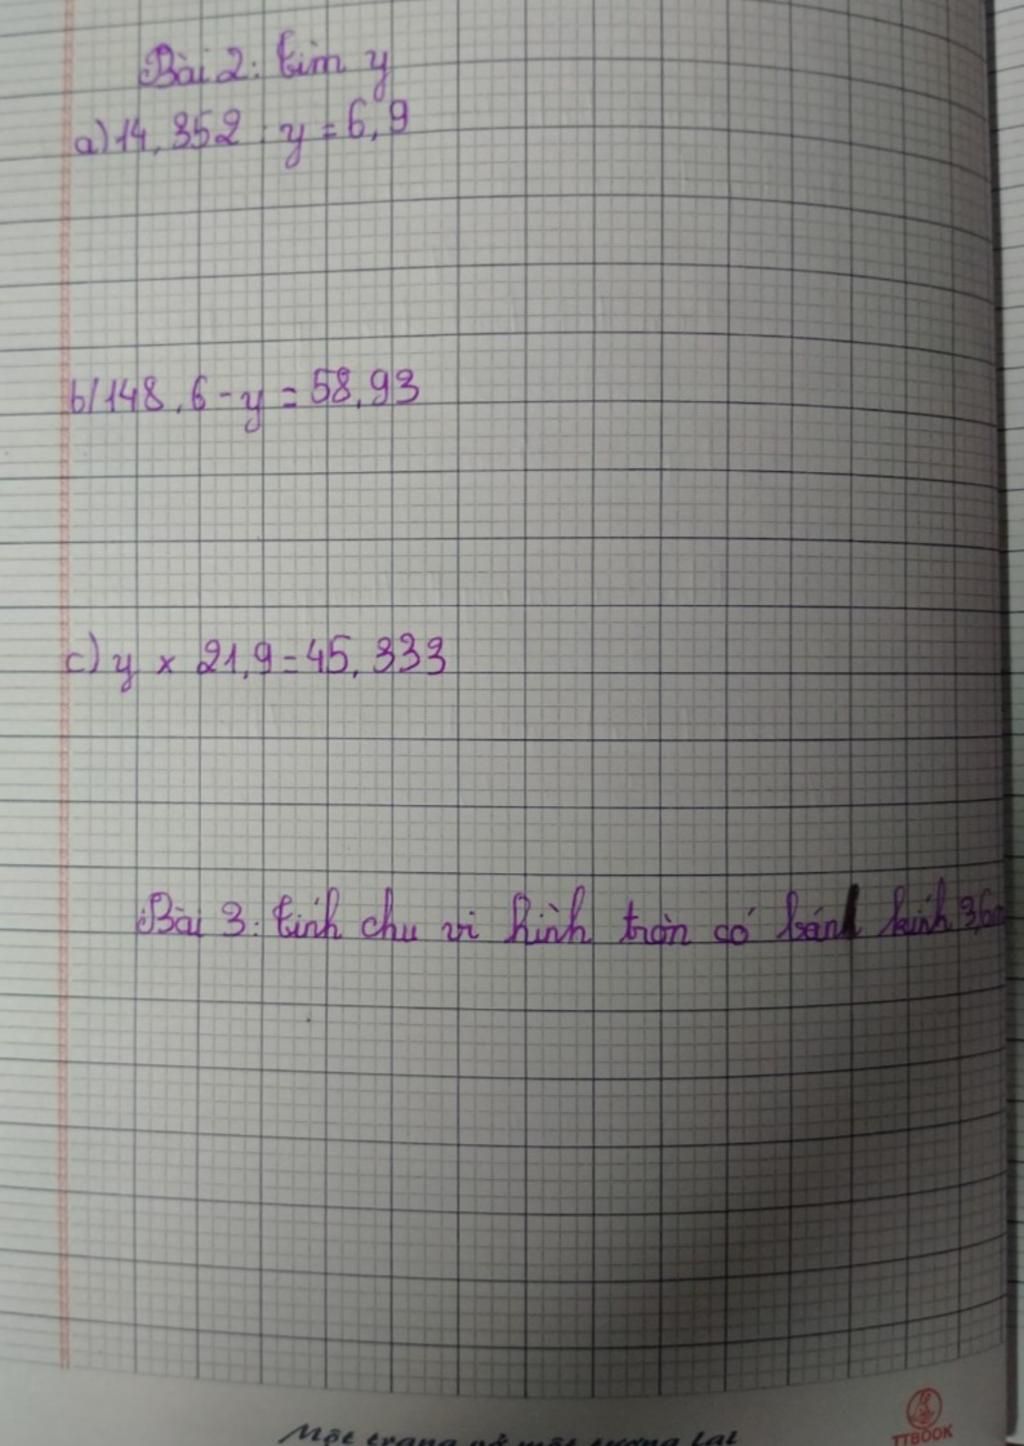 Bài 2: tìm y
a) 14,352 : y = 6,9
b/ 148,6 - y = 58,93
c) y x 21,9 = 45,333
Bài 3: tính chu vi hình tròn có bán kính 3,6m
Một trang vở một tương lai
TTBOOK